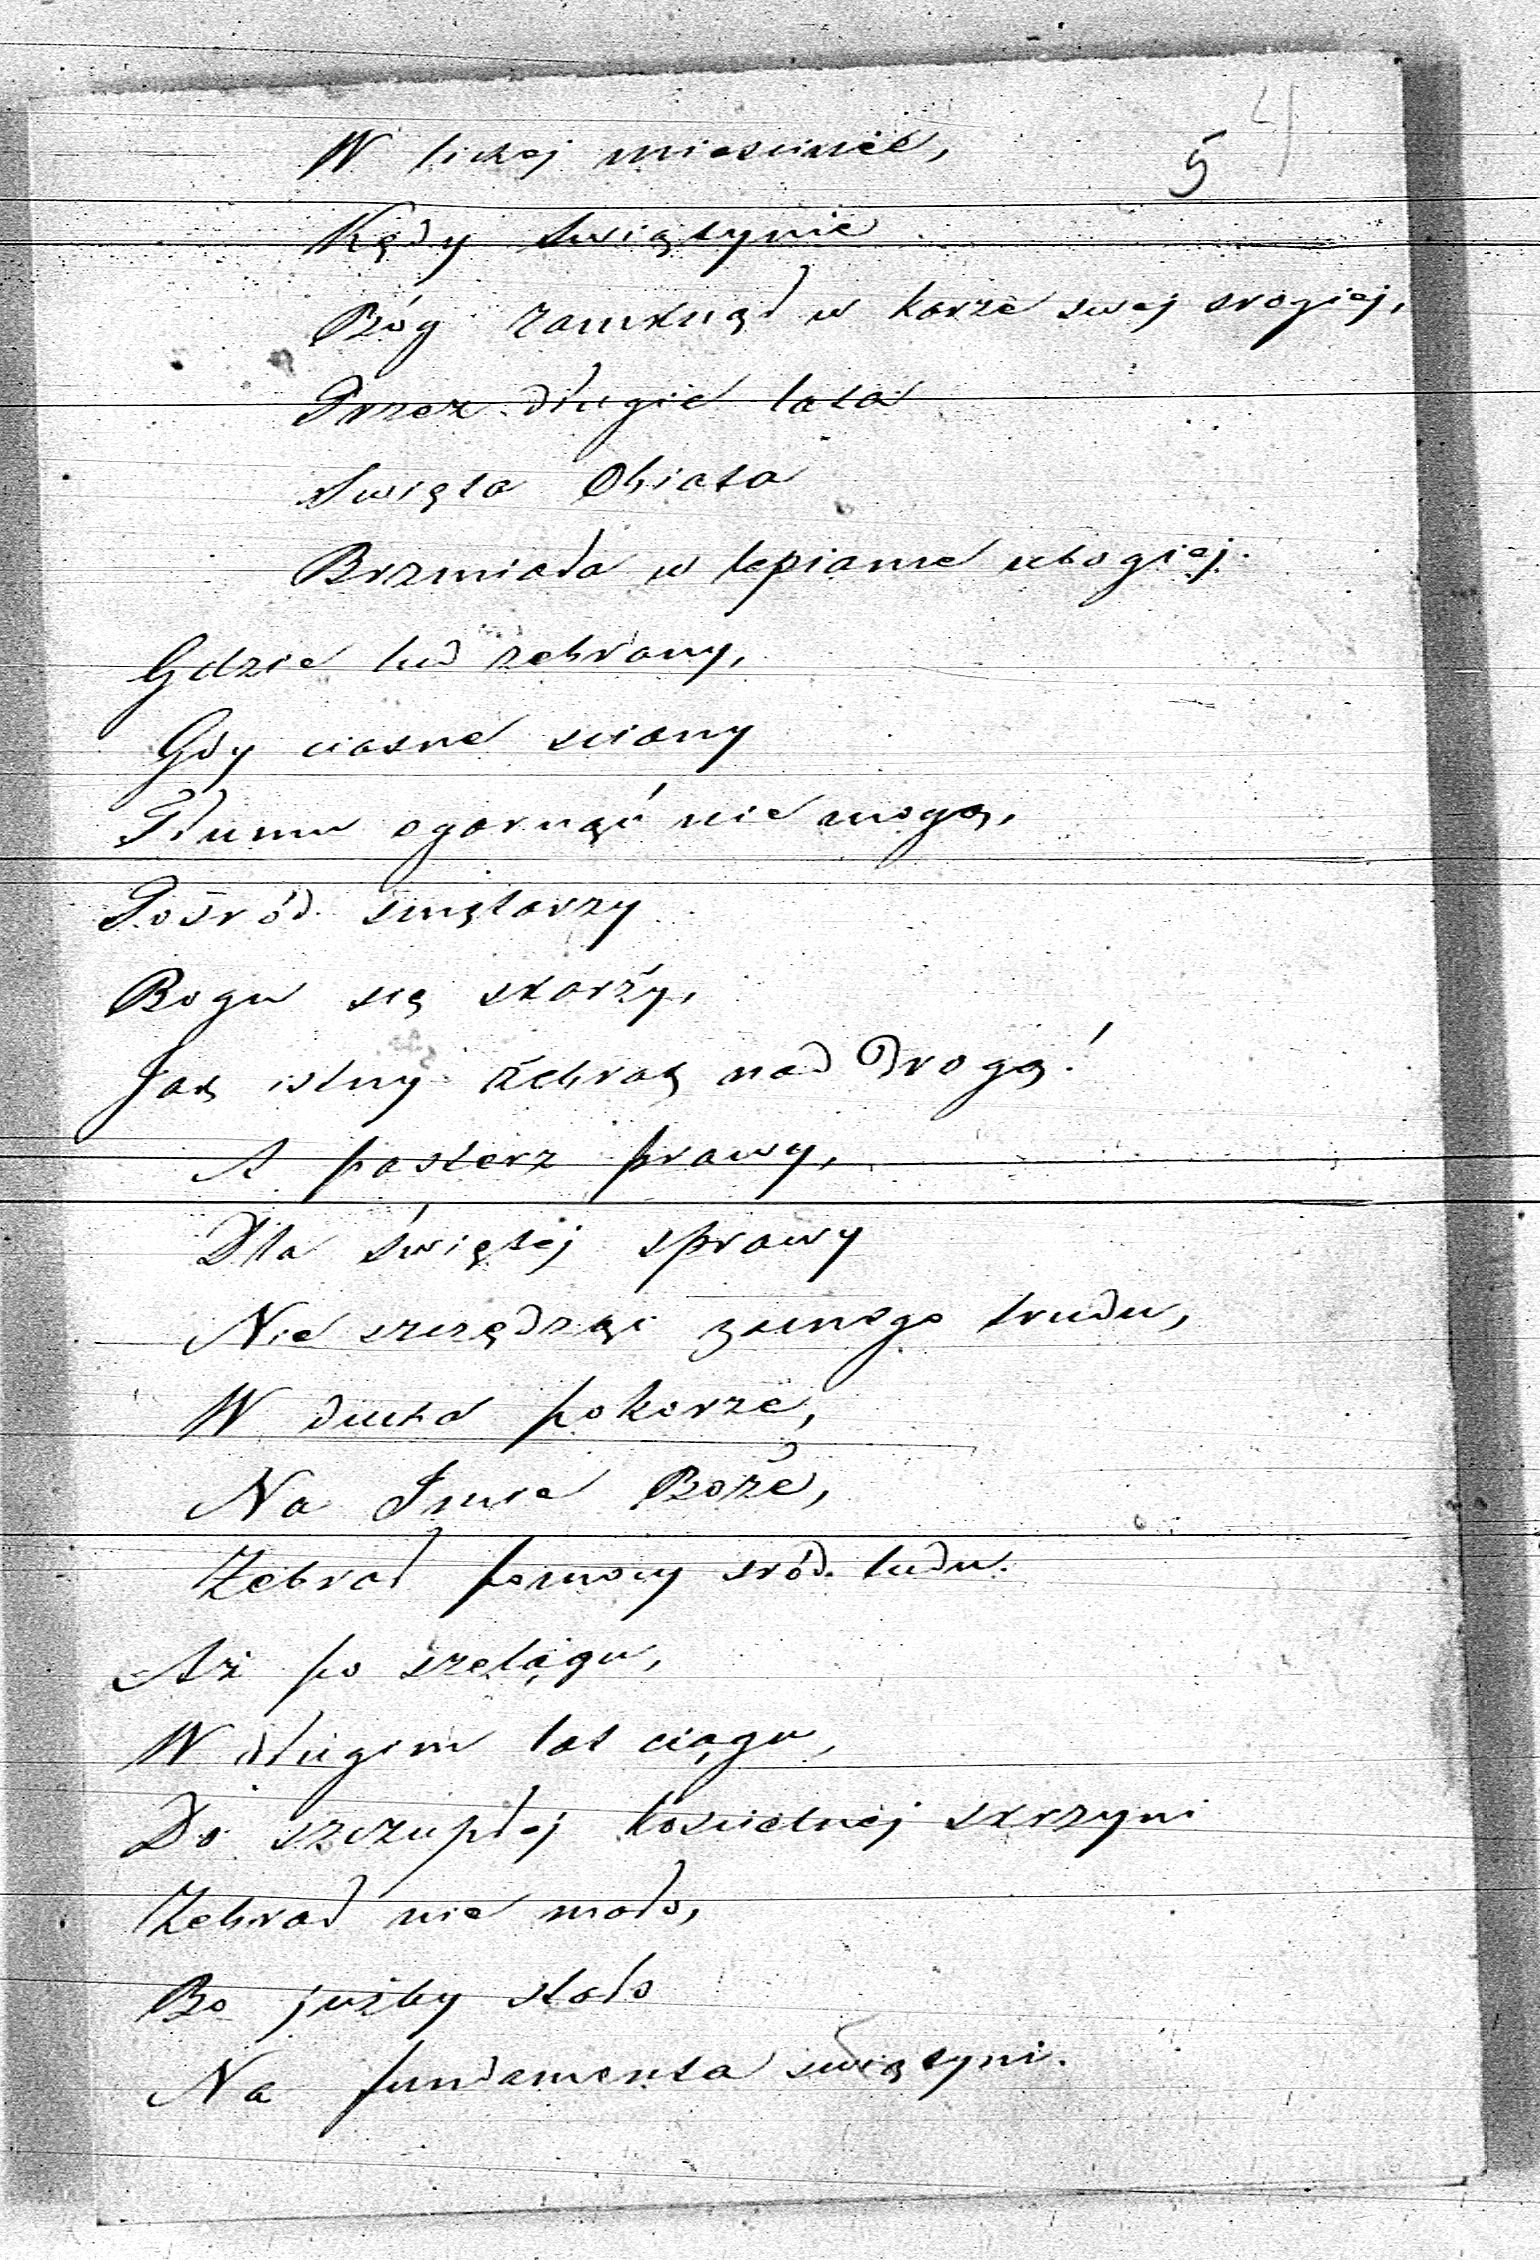 5 4
W lichej mieścinie,
Kędy świątynie
Bóg zamknął w karze swej srogiej,
Przez długie lata
Święta Obiata
Brzmiała w lepiance ubogiej.
Gdzie lud zebrany,
Gdy ciasne sciany
Tłumu ogarnąć nie mogą,
Pośród smętarzy
Bogu się skarży,
Jak istny żebrak nad Drogą!
A pasterz prawy,
Dla świętej sprawy
Nie szczędząc znego trudu,
W ducha pokorze,
Na Imie Boże,
Żebrał pomocy sród ludu.
Aż po szelągu,
W długim lat ciągu,
Do szczupłej kościelnej skrzyni
Zebrał nie mało,
Bo jużby stało
Na fundamenta świątyni.